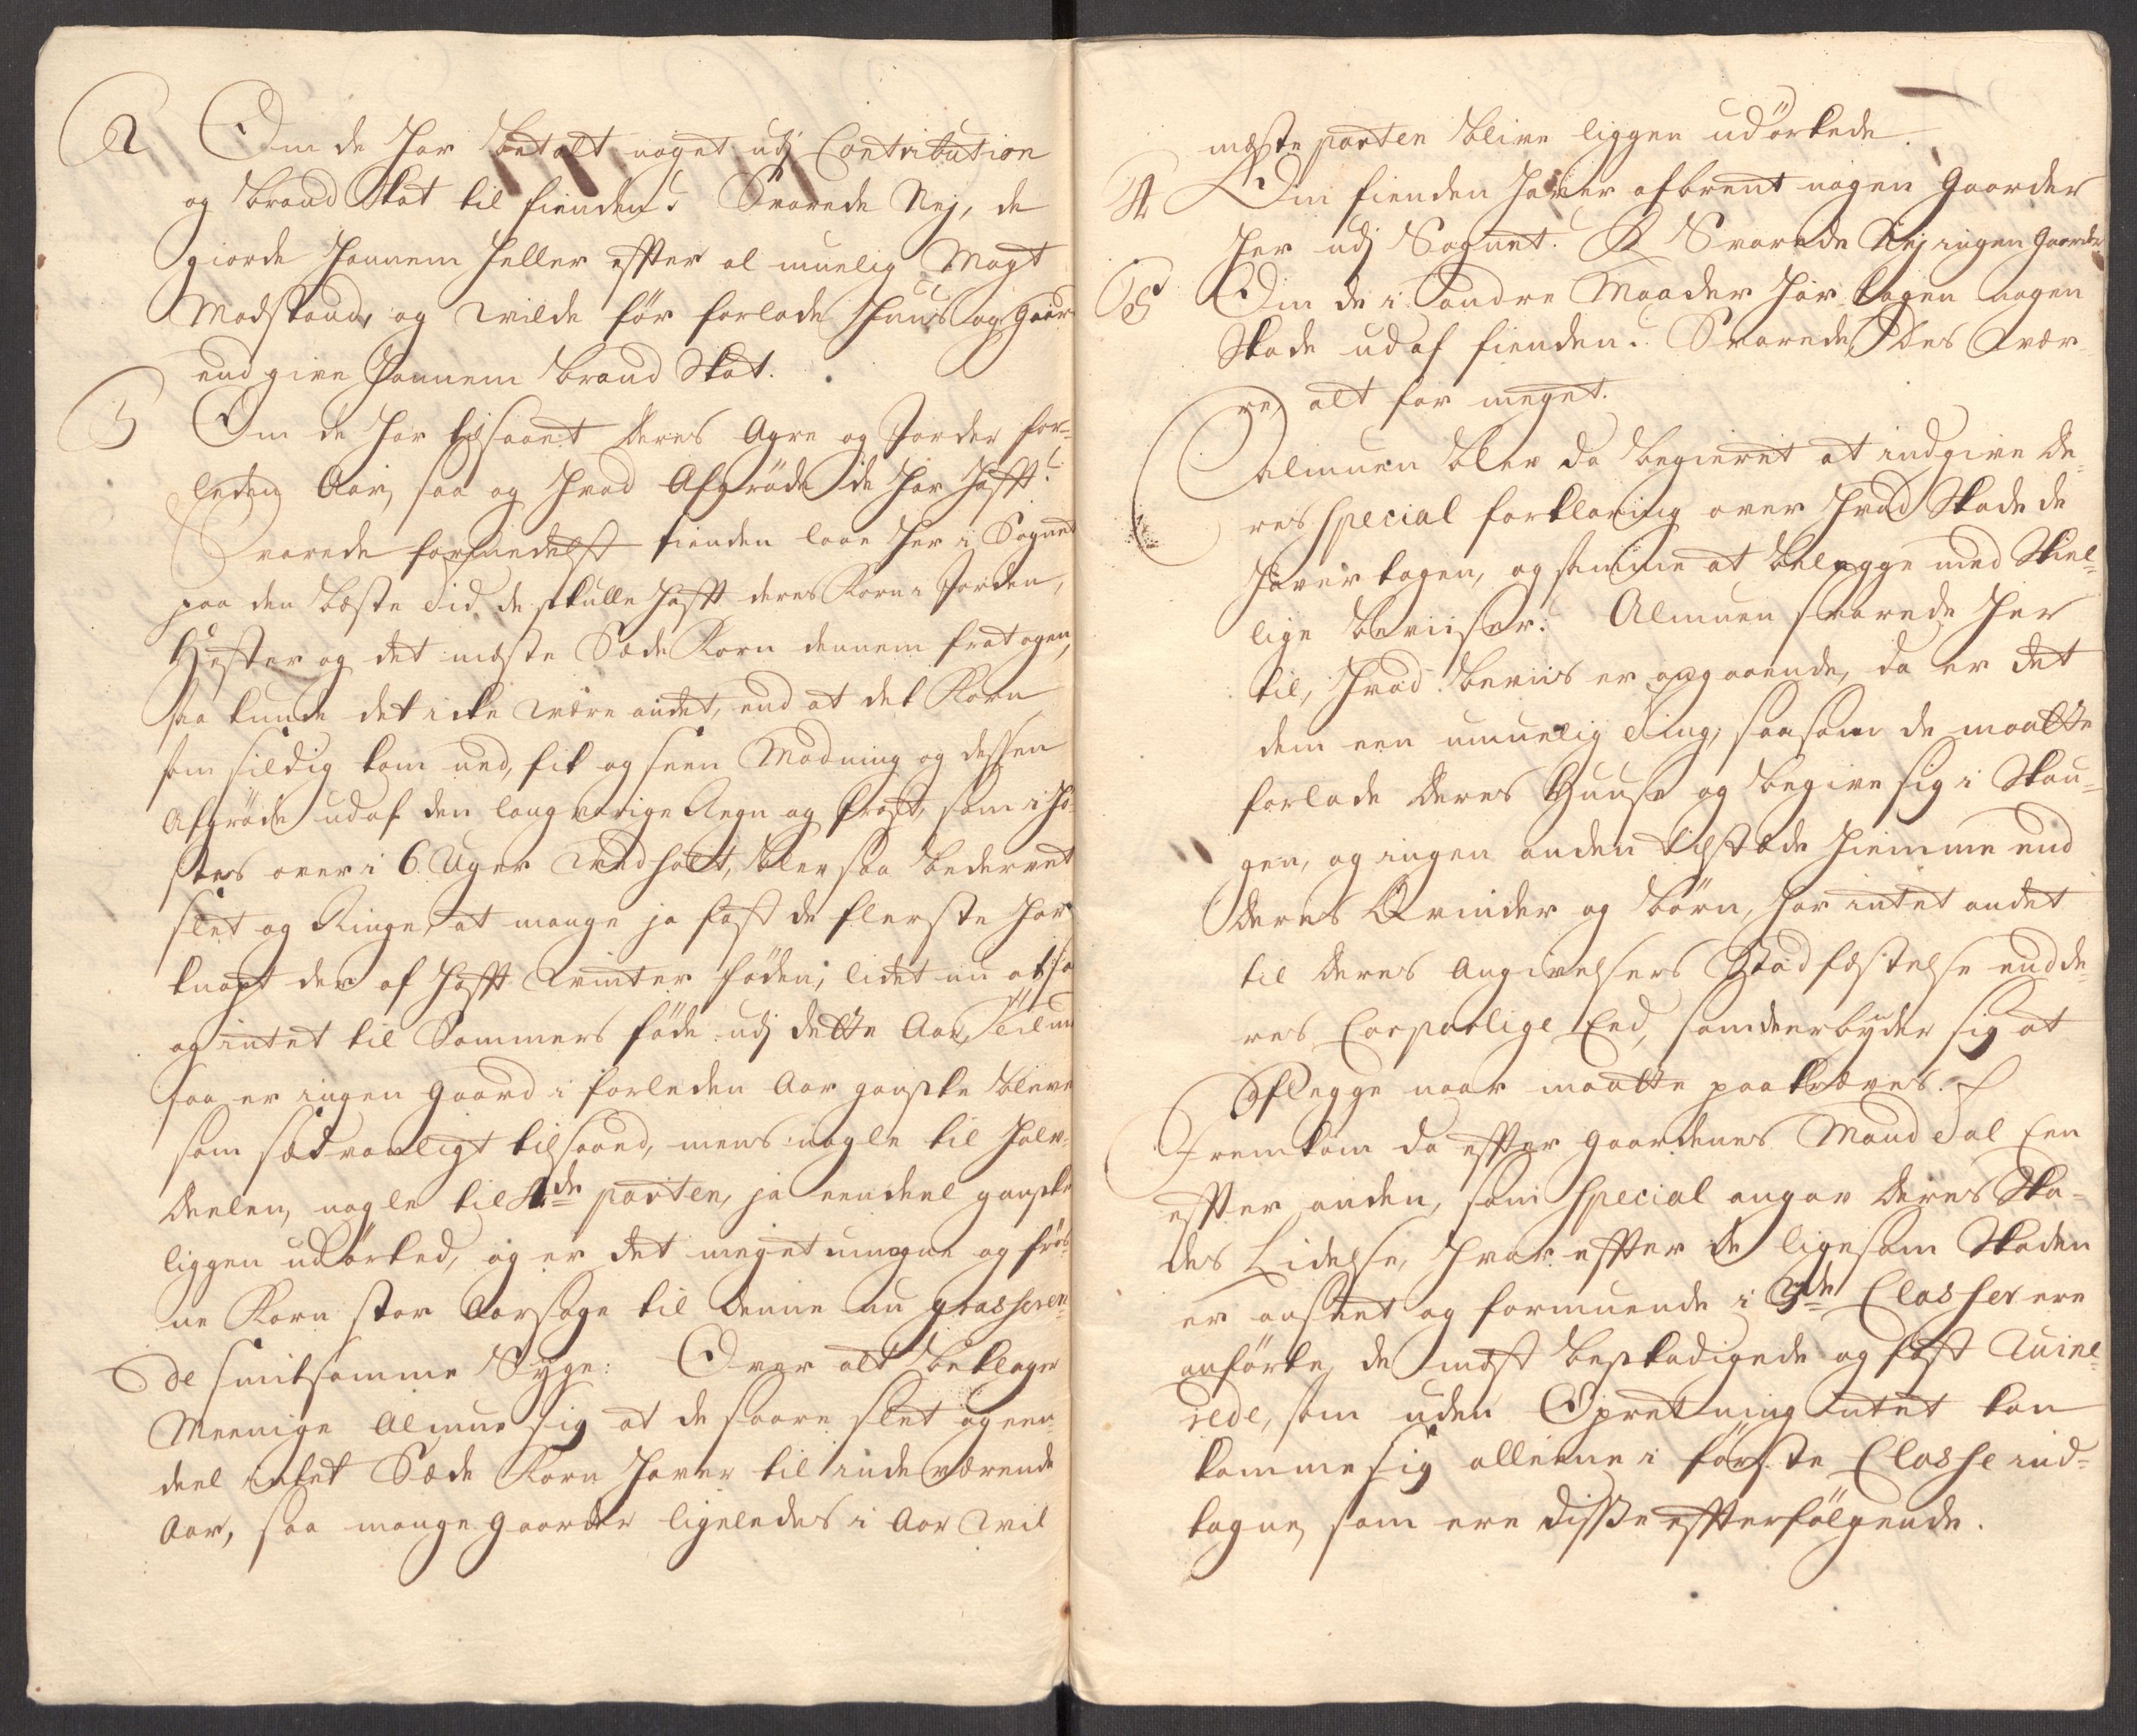 2 Om de har betalt noget udj Contribution
og brand Skat til fienden? Svarede Nej, de
giorde hannem heller effter al muelig Magt
Modstand, og wilde før forlade Huus og Gaar
end give hannem brand Skat.
3 Om de har tilsaaet deres Agre og Jorder for-
leden Aar, saa og hvad Afgröde de har hafft?
Svarede formedelst fienden laae her i Sognet
paa den bæste Tid de skulle hafft deres Korn i Jorden,
Hester og det meste Sæde Korn dennem fratagen,
saa kunde det icke være andet, end at det Korn
som sildig kom ned, fik og seen Modning og dessen
Afgröde udaf den langvarige Regn og frost, som i Hö-
stes over i 6 Uger wedholt, blev saa bedervet
slet og Ringe, at mange ja fast de fleeste har
knapt der af hafft winter föden, lidet nu at så
og intet til Sommers föde udj dette Aar,
saa er ingen Gaard i forleden Aar ganske bleve
som sædvanligt tilsaaed, mens nogle til halv-
deelen, nogle til 4de parten, ja eendeel ganske
liggen udörked, og er det meget umogne og frös-
ne Korn stor Aarsage til denne nu grasseren-
de smitsomme Syge: Over alt beklager
Meenige Almue sig at de saare slet og een
deel intet Sæde Korn haver til inde værende
Aar, saa mange Gaarder ligeledes i Aar wil
meste parten blive liggen udörkede.
4 Om fienden haver afbrent nogen Gaarder
her udj Sognet? Svarede Nej ingen Gaarder
5 Om de i andre Maader har tagen nogen
Skade udaf fienden? Svarede, Des vær-
re, alt for meget.
Almuen blev da begieret at indgive De-
res Special forklaring over hvad Skade de
haver tagen, og samme at belegge med Skiel-
lige beviiser? Almuen svarede her
til, hvad beviis er angaaende, da er det
dem een umuelig Ting, saasom de maatte
forlade deres Huuse og begive sig i Skou-
gen, og ingen anden tilstæde hiemme end
deres Qvinder og børn, har intet andet
til deres Angivelsers Stadfestelse end de-
res Corporlige Eed, som de erbyder sig at
aflegge naar maatte paakræves.
Fremkom da effter Gaardenes Mandtal Een
effter anden, som Special angav deres Ska-
des Lidelse, hvor effter de ligesom Skaden
er anseet og formuende i 3de Classer ere
anförte, de mest beskadigede og fast Ruine-
rede, som uden Opretning intet kan
komme sig alleene i förste Classe ind-
tagne, som ere disse effterfölgende.